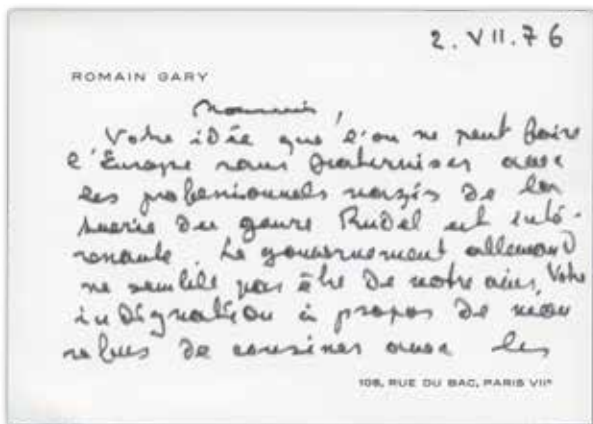 2.VII.76
ROMAIN GARY
Monsieur,
Votre idée que l'on ne peut faire
l'Europe sans fraterniser avec
les professionnels nazis de la
tuerie du genre Rudel est inté-
ressante. Le gouvernement allemand
ne semble pas être de votre avis. Votre
indignation à propos de mon
refus de cousiner avec les
108, RUE DU BAC, PARIS VIIᵉ